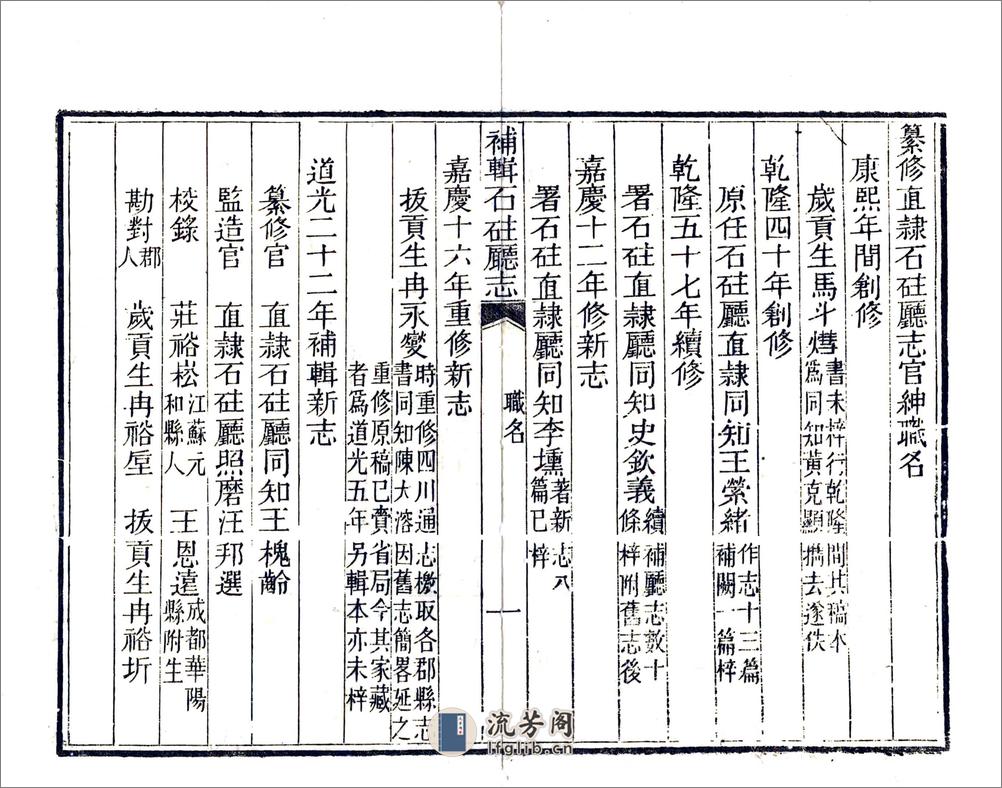 纂修直隷石砫廳志官紳職名
康熙年間創修
歲貢生馬斗㷿 書未梓行乾隆間其稿本
爲同知黃克顯擕去遂佚
乾隆四十年創修
原任石砫廳直隷同知王縈緒 作志十三篇
補闕一篇梓
乾隆五十七年續修
署石砫直隷廳同知史欽義 續補廳志數十
條梓附舊志後
嘉慶十二年修新志
署石砫直隷廳同知李壎 著新志八
篇已梓
補輯石砫廳志 職名 一
嘉慶十六年重修新志
拔貢生冉永燮 時重修四川通志檄取各郡縣志
書同知陳大溶因舊志簡畧延之
重修原稿已賫省局今其家藏
者爲道光五年另輯本亦未梓
道光二十二年補輯新志
纂修官 直隷石砫廳同知王槐齡
監造官 直隷石砫廳照磨汪邦選
校錄 莊裕崧 江蘇元
和縣人 王恩遠 成都華陽
縣附生
勘對 郡
人 歲貢生冉裕垕 拔貢生冉裕圻
流芳阁
lfglib.cn